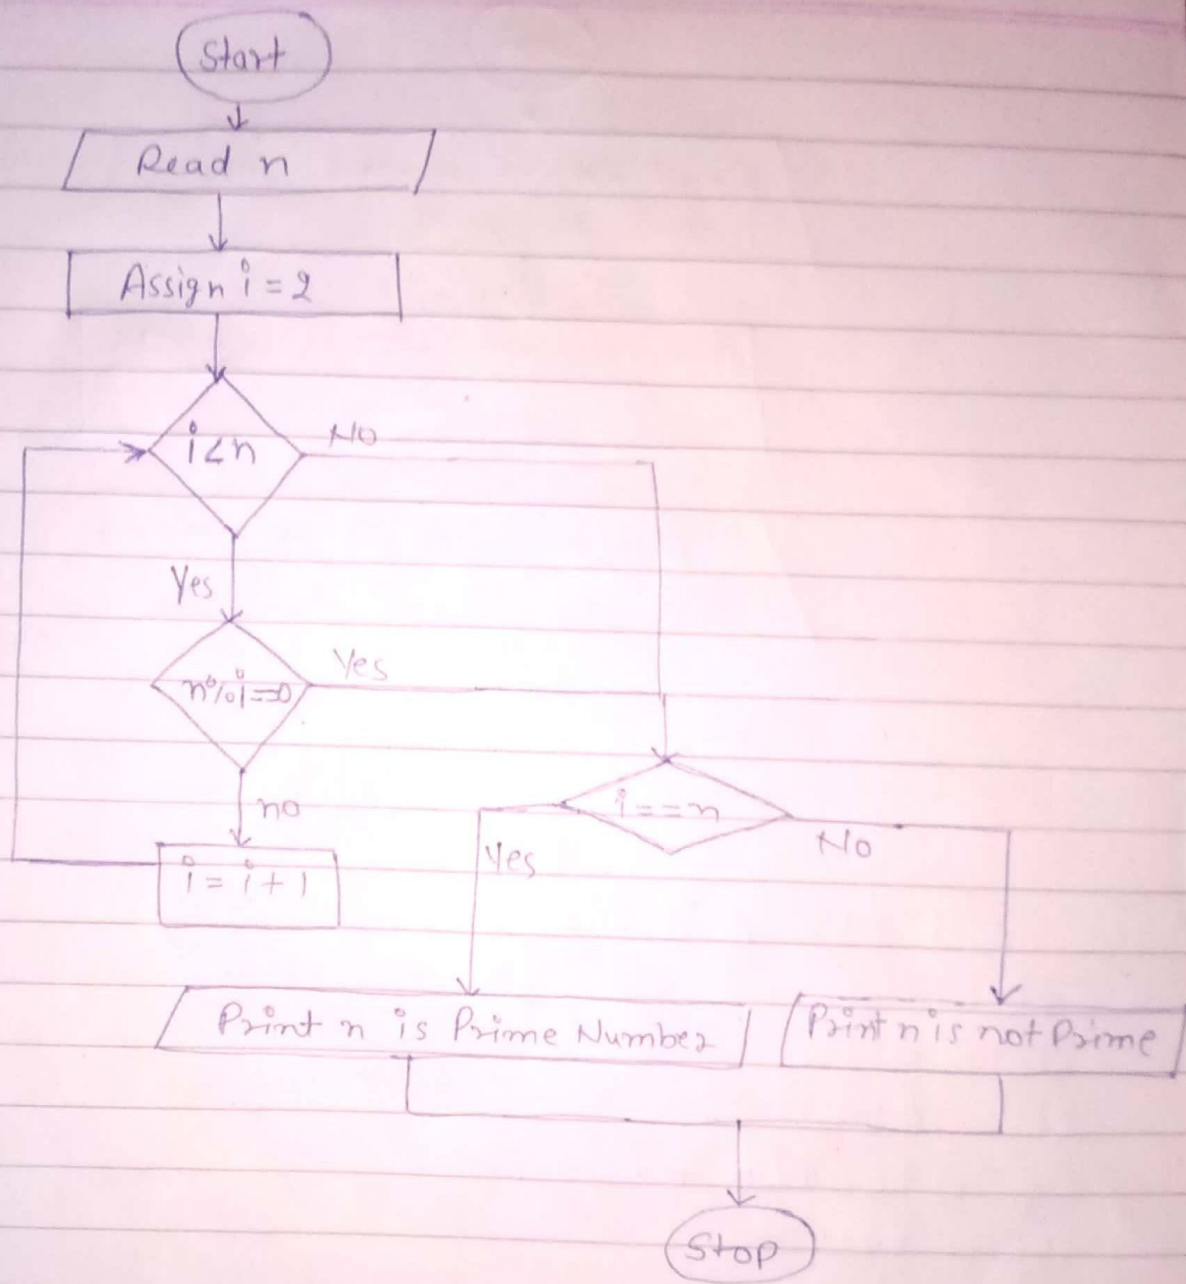 Start
Read n
Assign i = 2
i<n
No
Yes
n%i==0
Yes
no
i = i + 1
i==n
Yes
No
Print n is Prime Number
Print n is not Prime
Stop